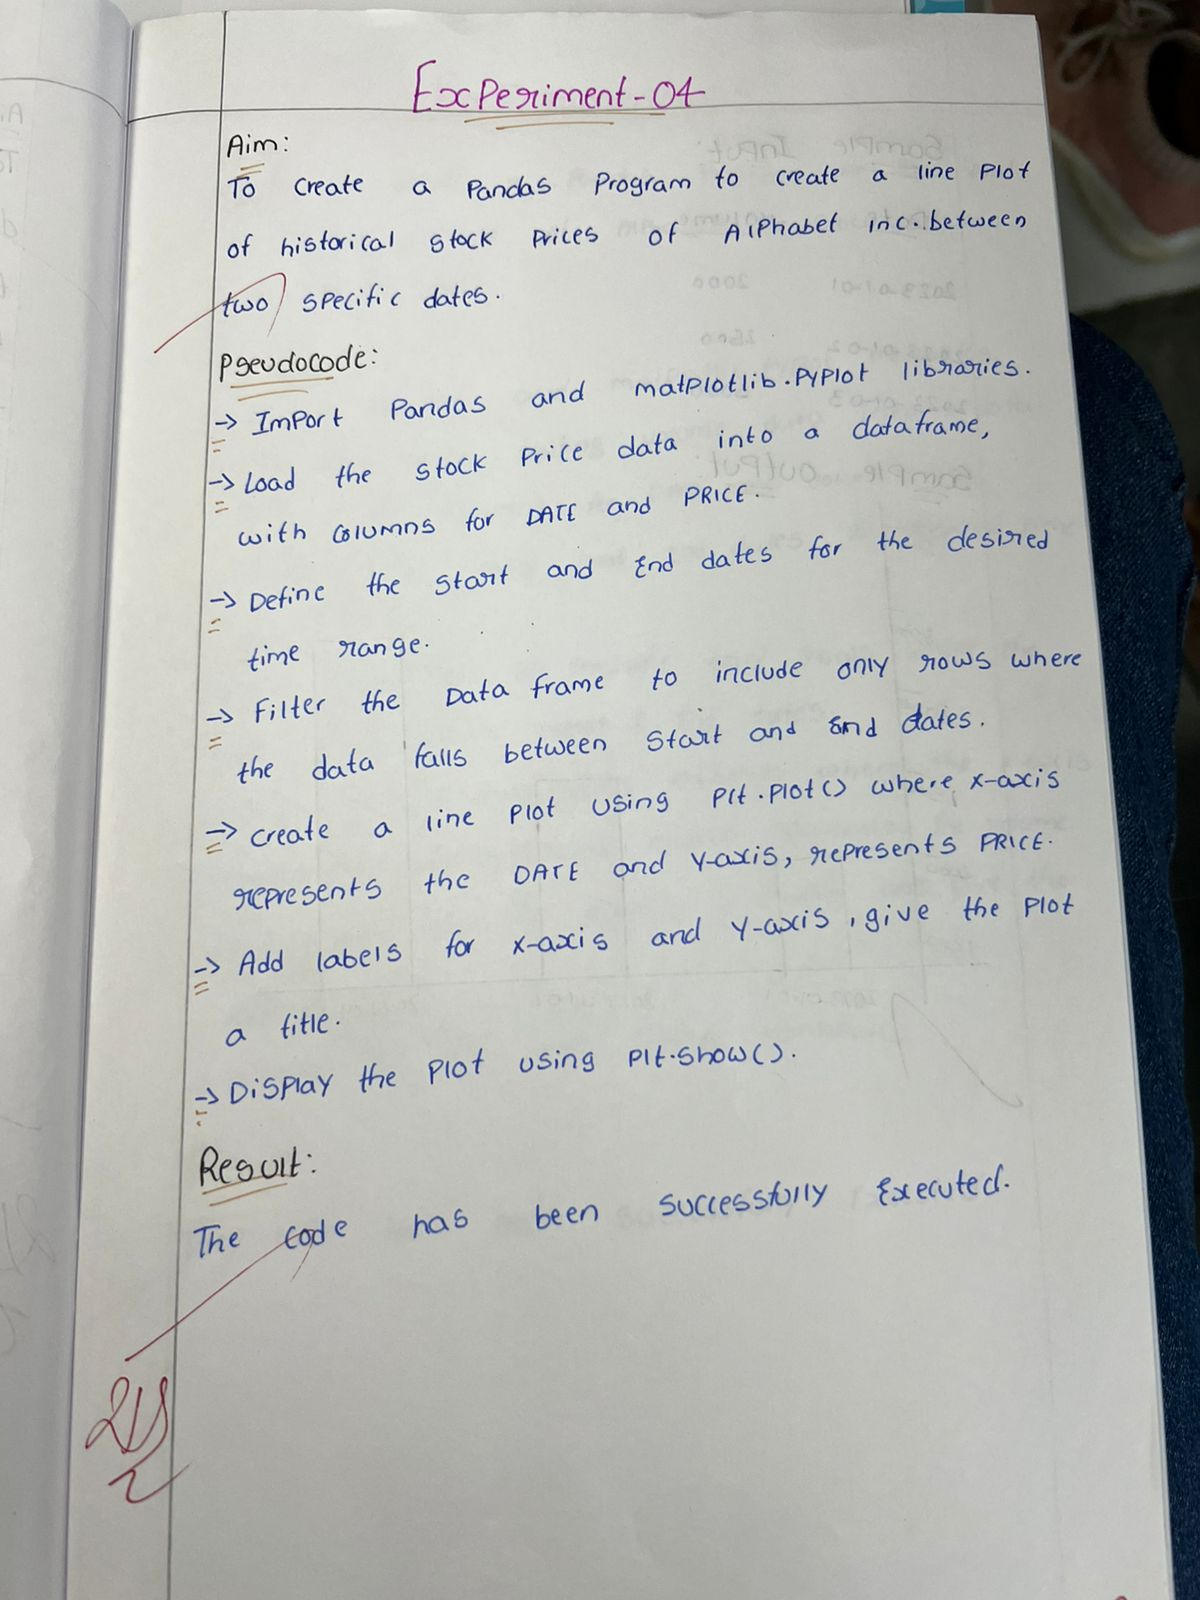 Experiment-04
Aim:
To create a Pandas Program to create a line Plot
of historical stock Prices of Alphabet inc. between
two specific dates.
Pseudocode:
-> Import Pandas and matplotlib.pyplot libraries.
-> Load the stock Price data into a dataframe,
with columns for DATE and PRICE.
-> Define the start and End dates for the desired
time range.
-> Filter the Data frame to include only rows where
the data falls between Start and End dates.
-> create a line plot using plt.plot() where x-axis
represents the DATE and Y-axis, represents PRICE.
-> Add labels for x-axis and Y-axis, give the plot
a title.
-> Display the plot using plt.show().
Result:
The code has been successfully Executed.